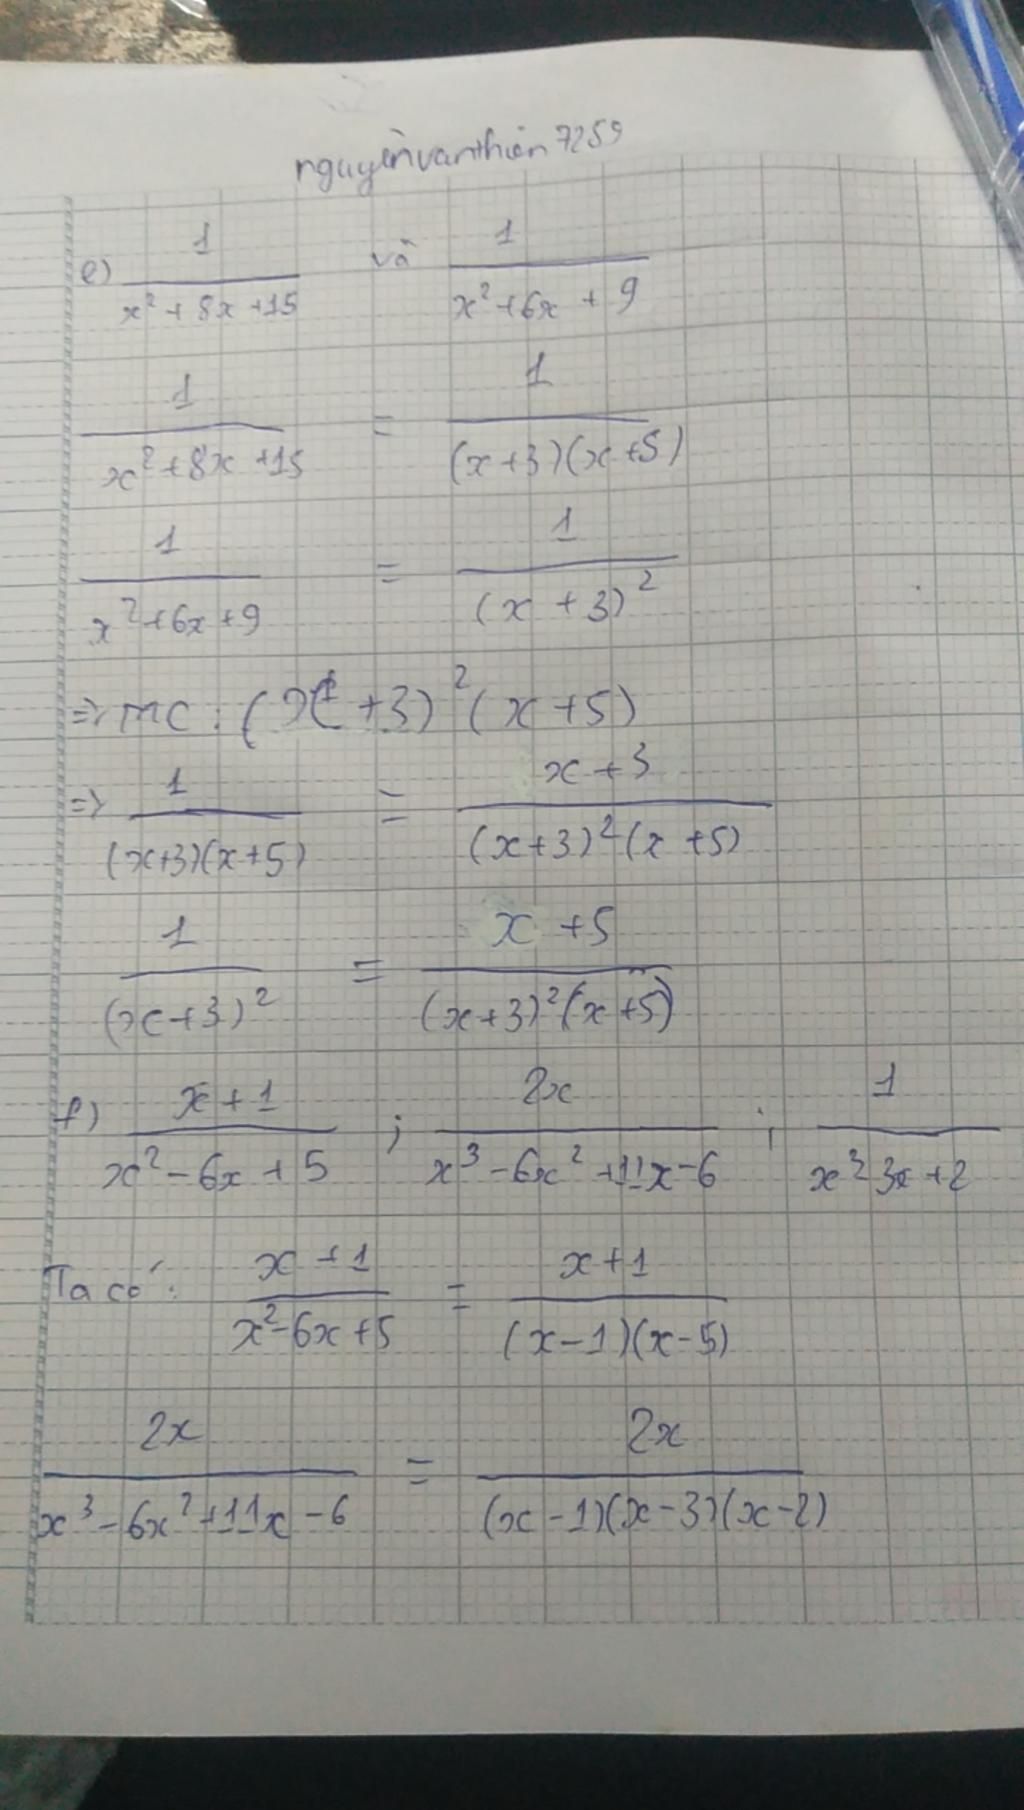 nguyễnvanthiên7259
e) 1/(x² + 8x + 15) và 1/(x² + 6x + 9)
1/(x² + 8x + 15) = 1/((x + 3)(x + 5))
1/(x² + 6x + 9) = 1/(x + 3)²
=> MC : (x + 3)² (x + 5)
=> 1/((x+3)(x+5)) = (x + 3)/((x+3)²(x + 5))
1/(x+3)² = (x + 5)/((x+3)²(x+5))
f) (x + 1)/(x² - 6x + 5) ; 2x/(x³ - 6x² + 11x - 6) ; 1/(x² 3x + 2)
Ta có : (x + 1)/(x² - 6x + 5) = (x + 1)/((x - 1)(x - 5))
2x/(x³ - 6x² + 11x - 6) = 2x/((x - 1)(x - 3)(x - 2))